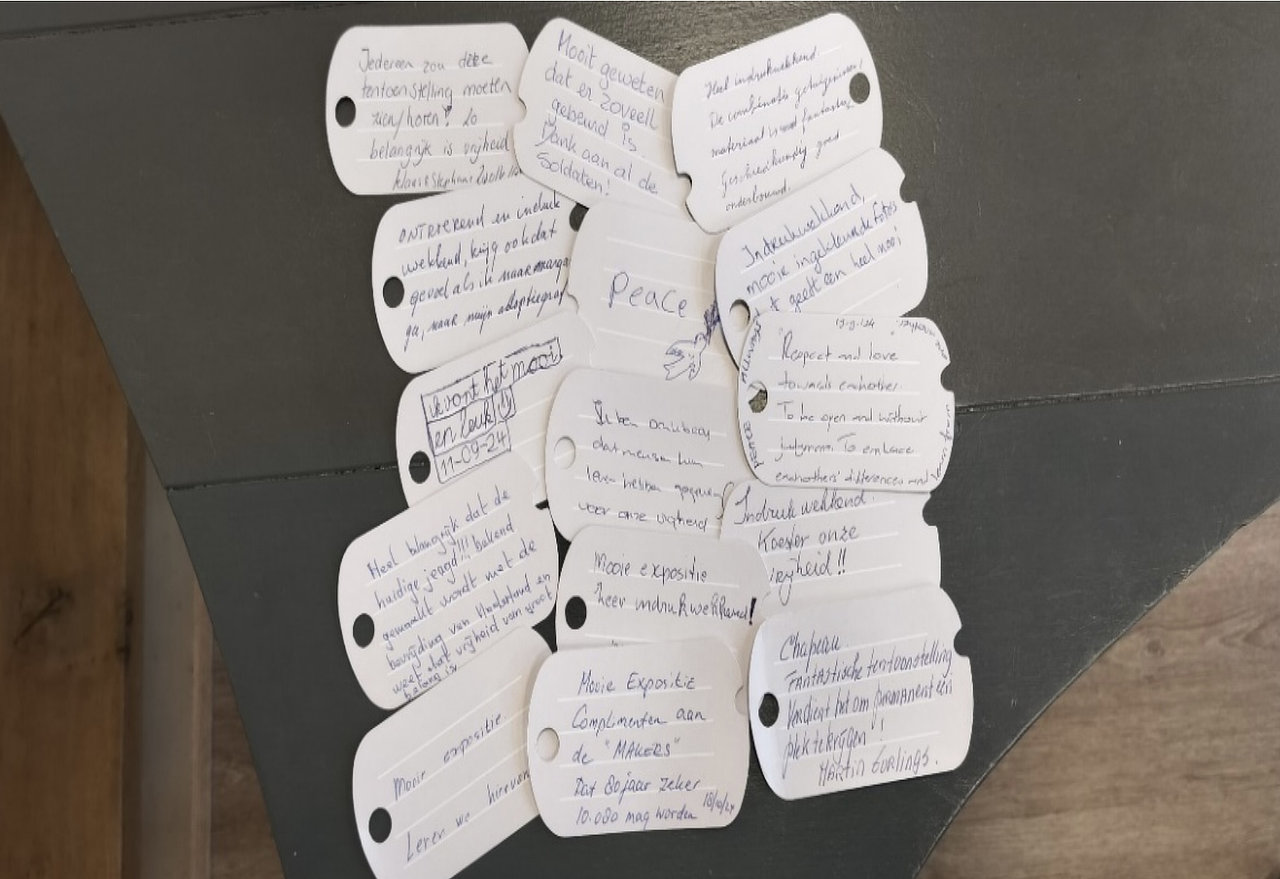 Iedereen zou deze
tentoonstelling moeten
zien/horen! Zo
belangrijk is vrijheid
Klaus & Stephan
Nooit geweten
dat er zoveel
gebeurd is.
Dank aan al de
Soldaten!
Heel indrukwekkend.
De combinatie getuigenissen,
materiaal is fantastisch
Geschiedkundig goed
onderbouwd.
ONTROEREND en indruk
wekkend, krijg ook dat
gevoel als ik naar
ga, naar mijn adoptiegraf
Peace
Indrukwekkend,
mooie ingekleurde foto's
geeft een heel mooi
ik vont het mooi
en leuk
11-09-24
Ik ben dankbaar
dat mensen hun
leven hebben gegeven
voor onze vrijheid
Respect and love
towards eachother.
To be open and without
judgment. To embrace
eachothers' differences and
PEACE
Indrukwekkend.
Koester onze
vrijheid!!
Heel belangrijk dat de
huidige jeugd!!! bekend
gemaakt wordt met de
bevrijding van Nederland en
weet wat vrijheid van groot
belang is
Mooie expositie
Zeer indrukwekkend!
Chapeau
FANTASTISCHE tentoonstelling
Verdient het om permanent een
plek te krijgen!
Martin Gorlings.
Mooie expositie
Leren we hiervan
Mooie Expositie
Complimenten aan
de "MAKERS"
Dat 80 jaar zeker
10.000 mag worden
18/10/24